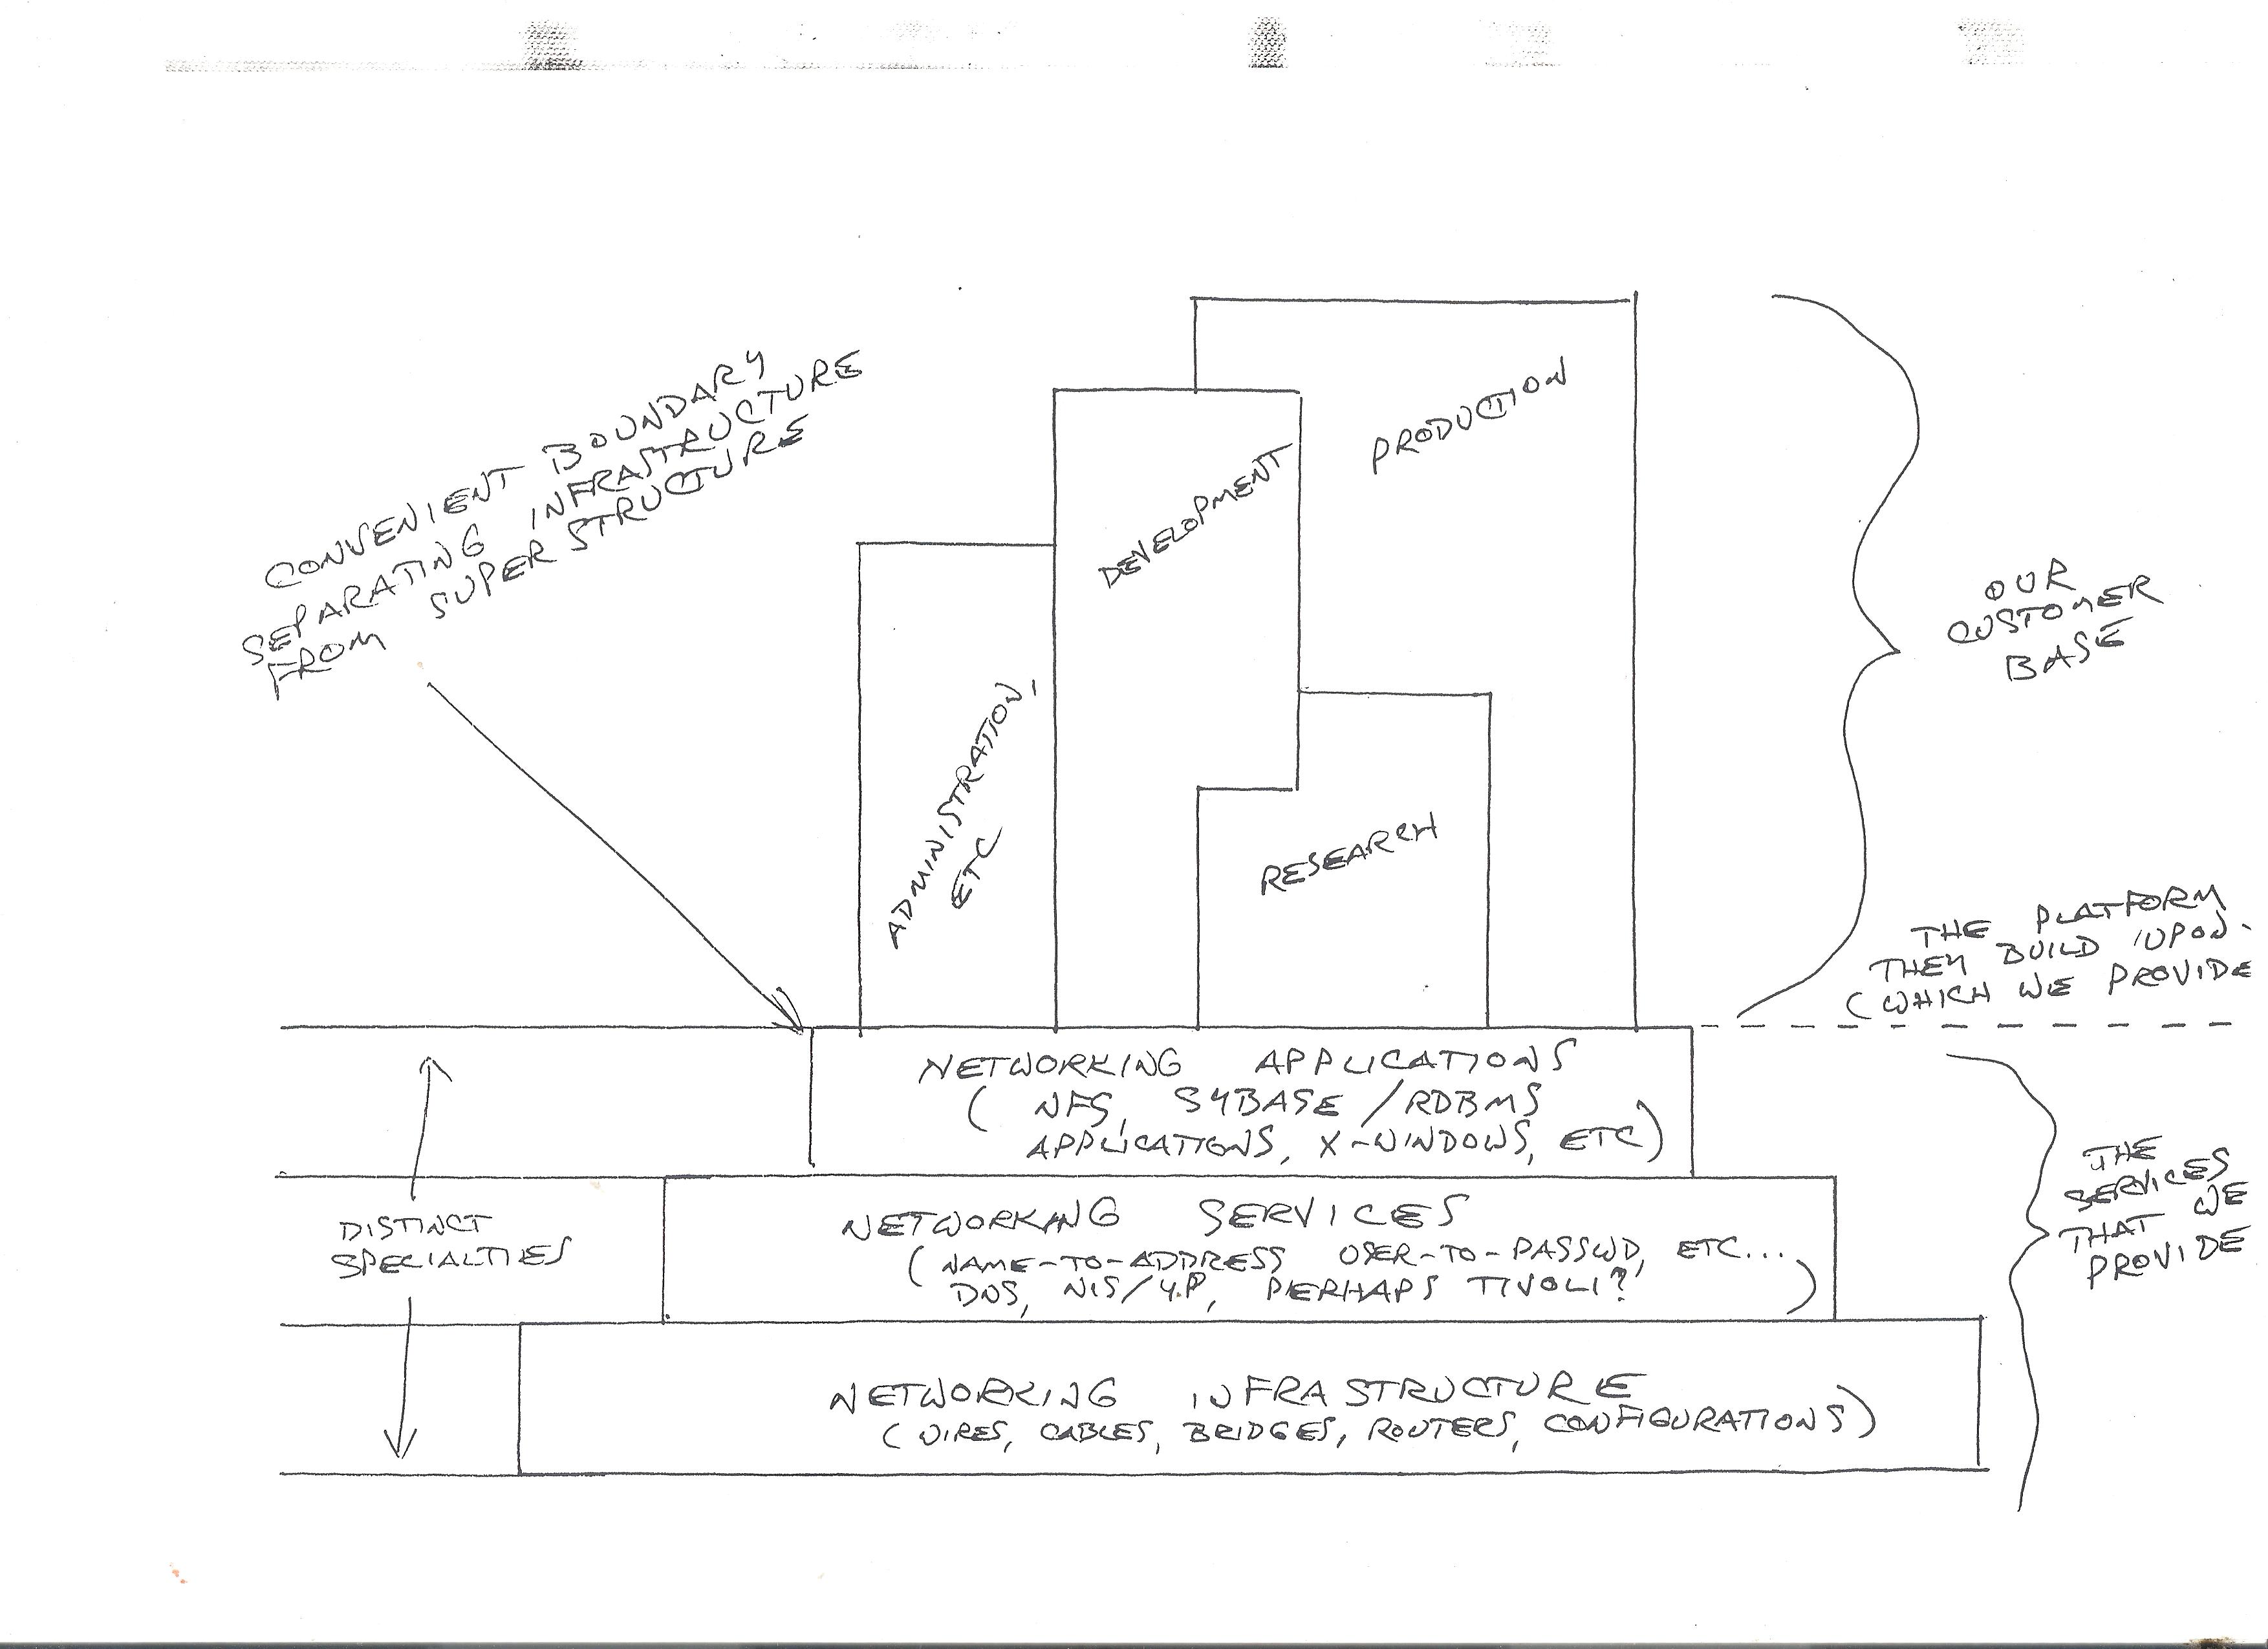 CONVENIENT BOUNDARY
SEPARATING INFRASTRUCTURE
FROM SUPER STRUCTURE
PRODUCTION
DEVELOPMENT
ADMINISTRATION,
ETC
RESEARCH
OUR
CUSTOMER
BASE
THE PLATFORM
THEY BUILD UPON.
(WHICH WE PROVIDE
NETWORKING APPLICATIONS
( NFS, SYBASE / RDBMS
APPLICATIONS, X-WINDOWS, ETC)
DISTINCT
SPECIALTIES
NETWORKING SERVICES
( NAME-TO-ADDRESS USER-TO-PASSWD, ETC...
DNS, NIS/Y.P, PERHAPS TIVOLI? )
THE
SERVICES
THAT WE
PROVIDE
NETWORKING INFRASTRUCTURE
( WIRES, CABLES, BRIDGES, ROUTERS, CONFIGURATIONS)